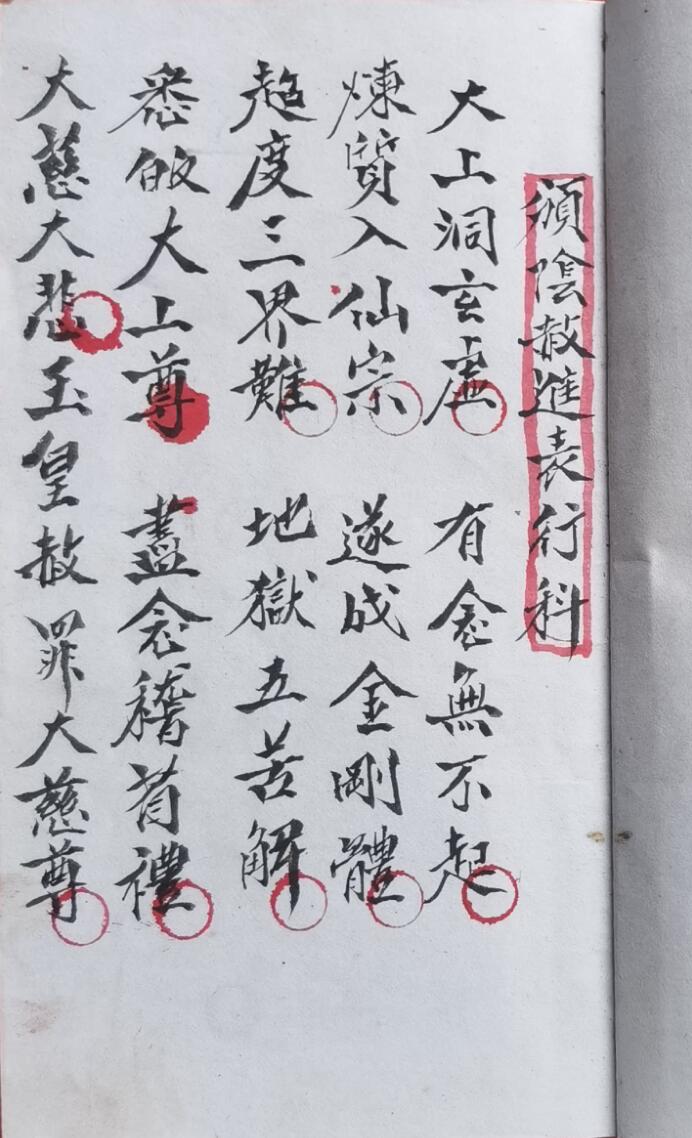 頒陰赦進表行科
大上洞玄虛 有念無不起
煉質入仙宗 遂成金剛體
超度三界難 地獄五苦解
悉皈大上尊 盡念稽首禮
大慈大悲玉皇赦罪大慈尊